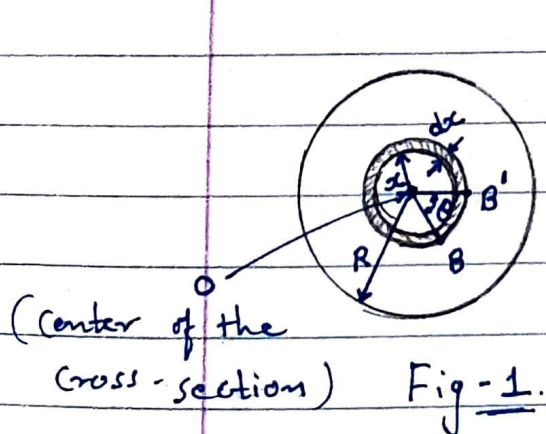 dx
x
θ
B'
R
B
O
(Center of the
Cross-section)
Fig-1.